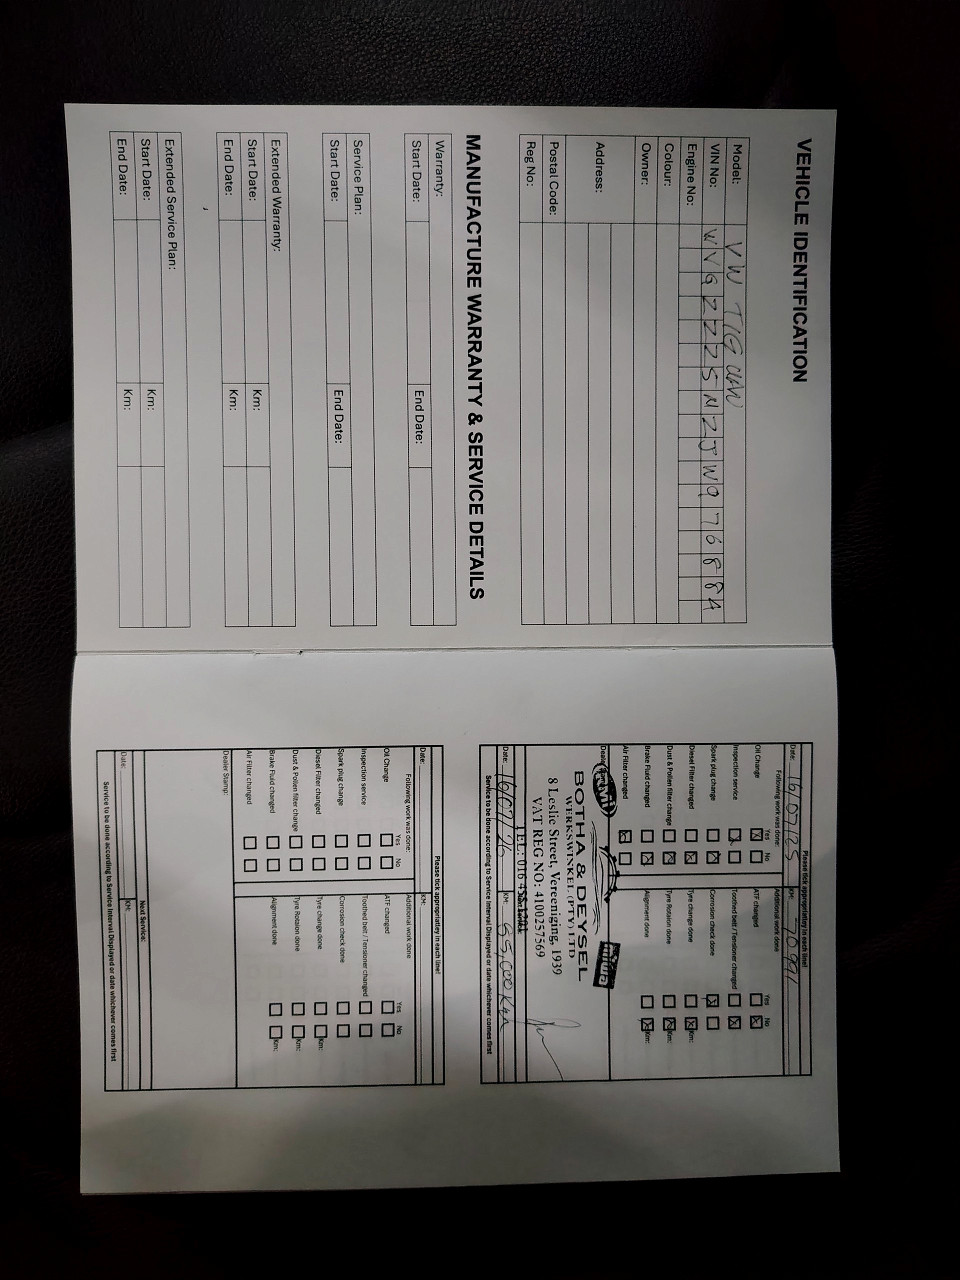 VEHICLE IDENTIFICATION
Model: VW TIGUAN
VIN No: WVGZZZ5NZJW976884
Engine No:
Colour:
Owner:
Address:
Postal Code:
Reg No:
MANUFACTURE WARRANTY & SERVICE DETAILS
Warranty:
Start Date: End Date:
Service Plan:
Start Date: End Date:
Extended Warranty:
Start Date: Km:
End Date: Km:
Extended Service Plan:
Start Date: Km:
End Date: Km:
Please tick appropriatley in each line!
Date: 16/07/25 KM: 70991
Following work was done: Additional work done
Yes No Yes No
Oil Change ATF changed
Inspection service Toothed belt / Tensioner changed
Spark plug change Corrosion check done
Diesel Filter changed Tyre change done Km:
Dust & Pollen filter change Tyre Rotaion done Km:
Brake Fluid changed Alignment done Km:
Air Filter changed
BOTHA & DEYSEL
WERKSWINKEL (PTY) LTD
8 Leslie Street, Vereeniging, 1939
VAT REG NO: 4100257569
TEL: 016
Date: 16/07/26 KM: 85,000 Km
Service to be done according to Service Interval Displayed or date whichever comes first
Please tick appropriatley in each line!
Date: KM:
Following work was done: Additional work done
Yes No Yes No
Oil Change ATF changed
Inspection service Toothed belt / Tensioner changed
Spark plug change Corrosion check done
Diesel Filter changed Tyre change done Km:
Dust & Pollen filter change Tyre Rotaion done Km:
Brake Fluid changed Alignment done Km:
Air Filter changed
Dealer Stamp:
Next Service:
Date: KM:
Service to be done according to Service Interval Displayed or date whichever comes first